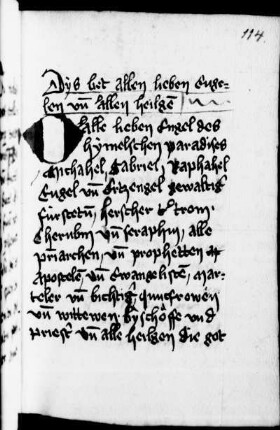 114.
Dys bet allen lieben Enge-
len vn̄ allen heilgē
O Alle lieben Engel des
hymelschen paradises
Michahel, Gabriel, Raphahel
Engel vn̄ Ertzengel gewaltig
fürstetū, herscher trom
Cherubin vn̄ seraphin, alle
priarchen, vn̄ prophetten
Apostelē, vn̄ Ewangelistē, mar-
teler vn̄ bichtig Junckfrowen
vn̄ wittewen byschöffe vnd
priest vn̄ alle heilgen die got